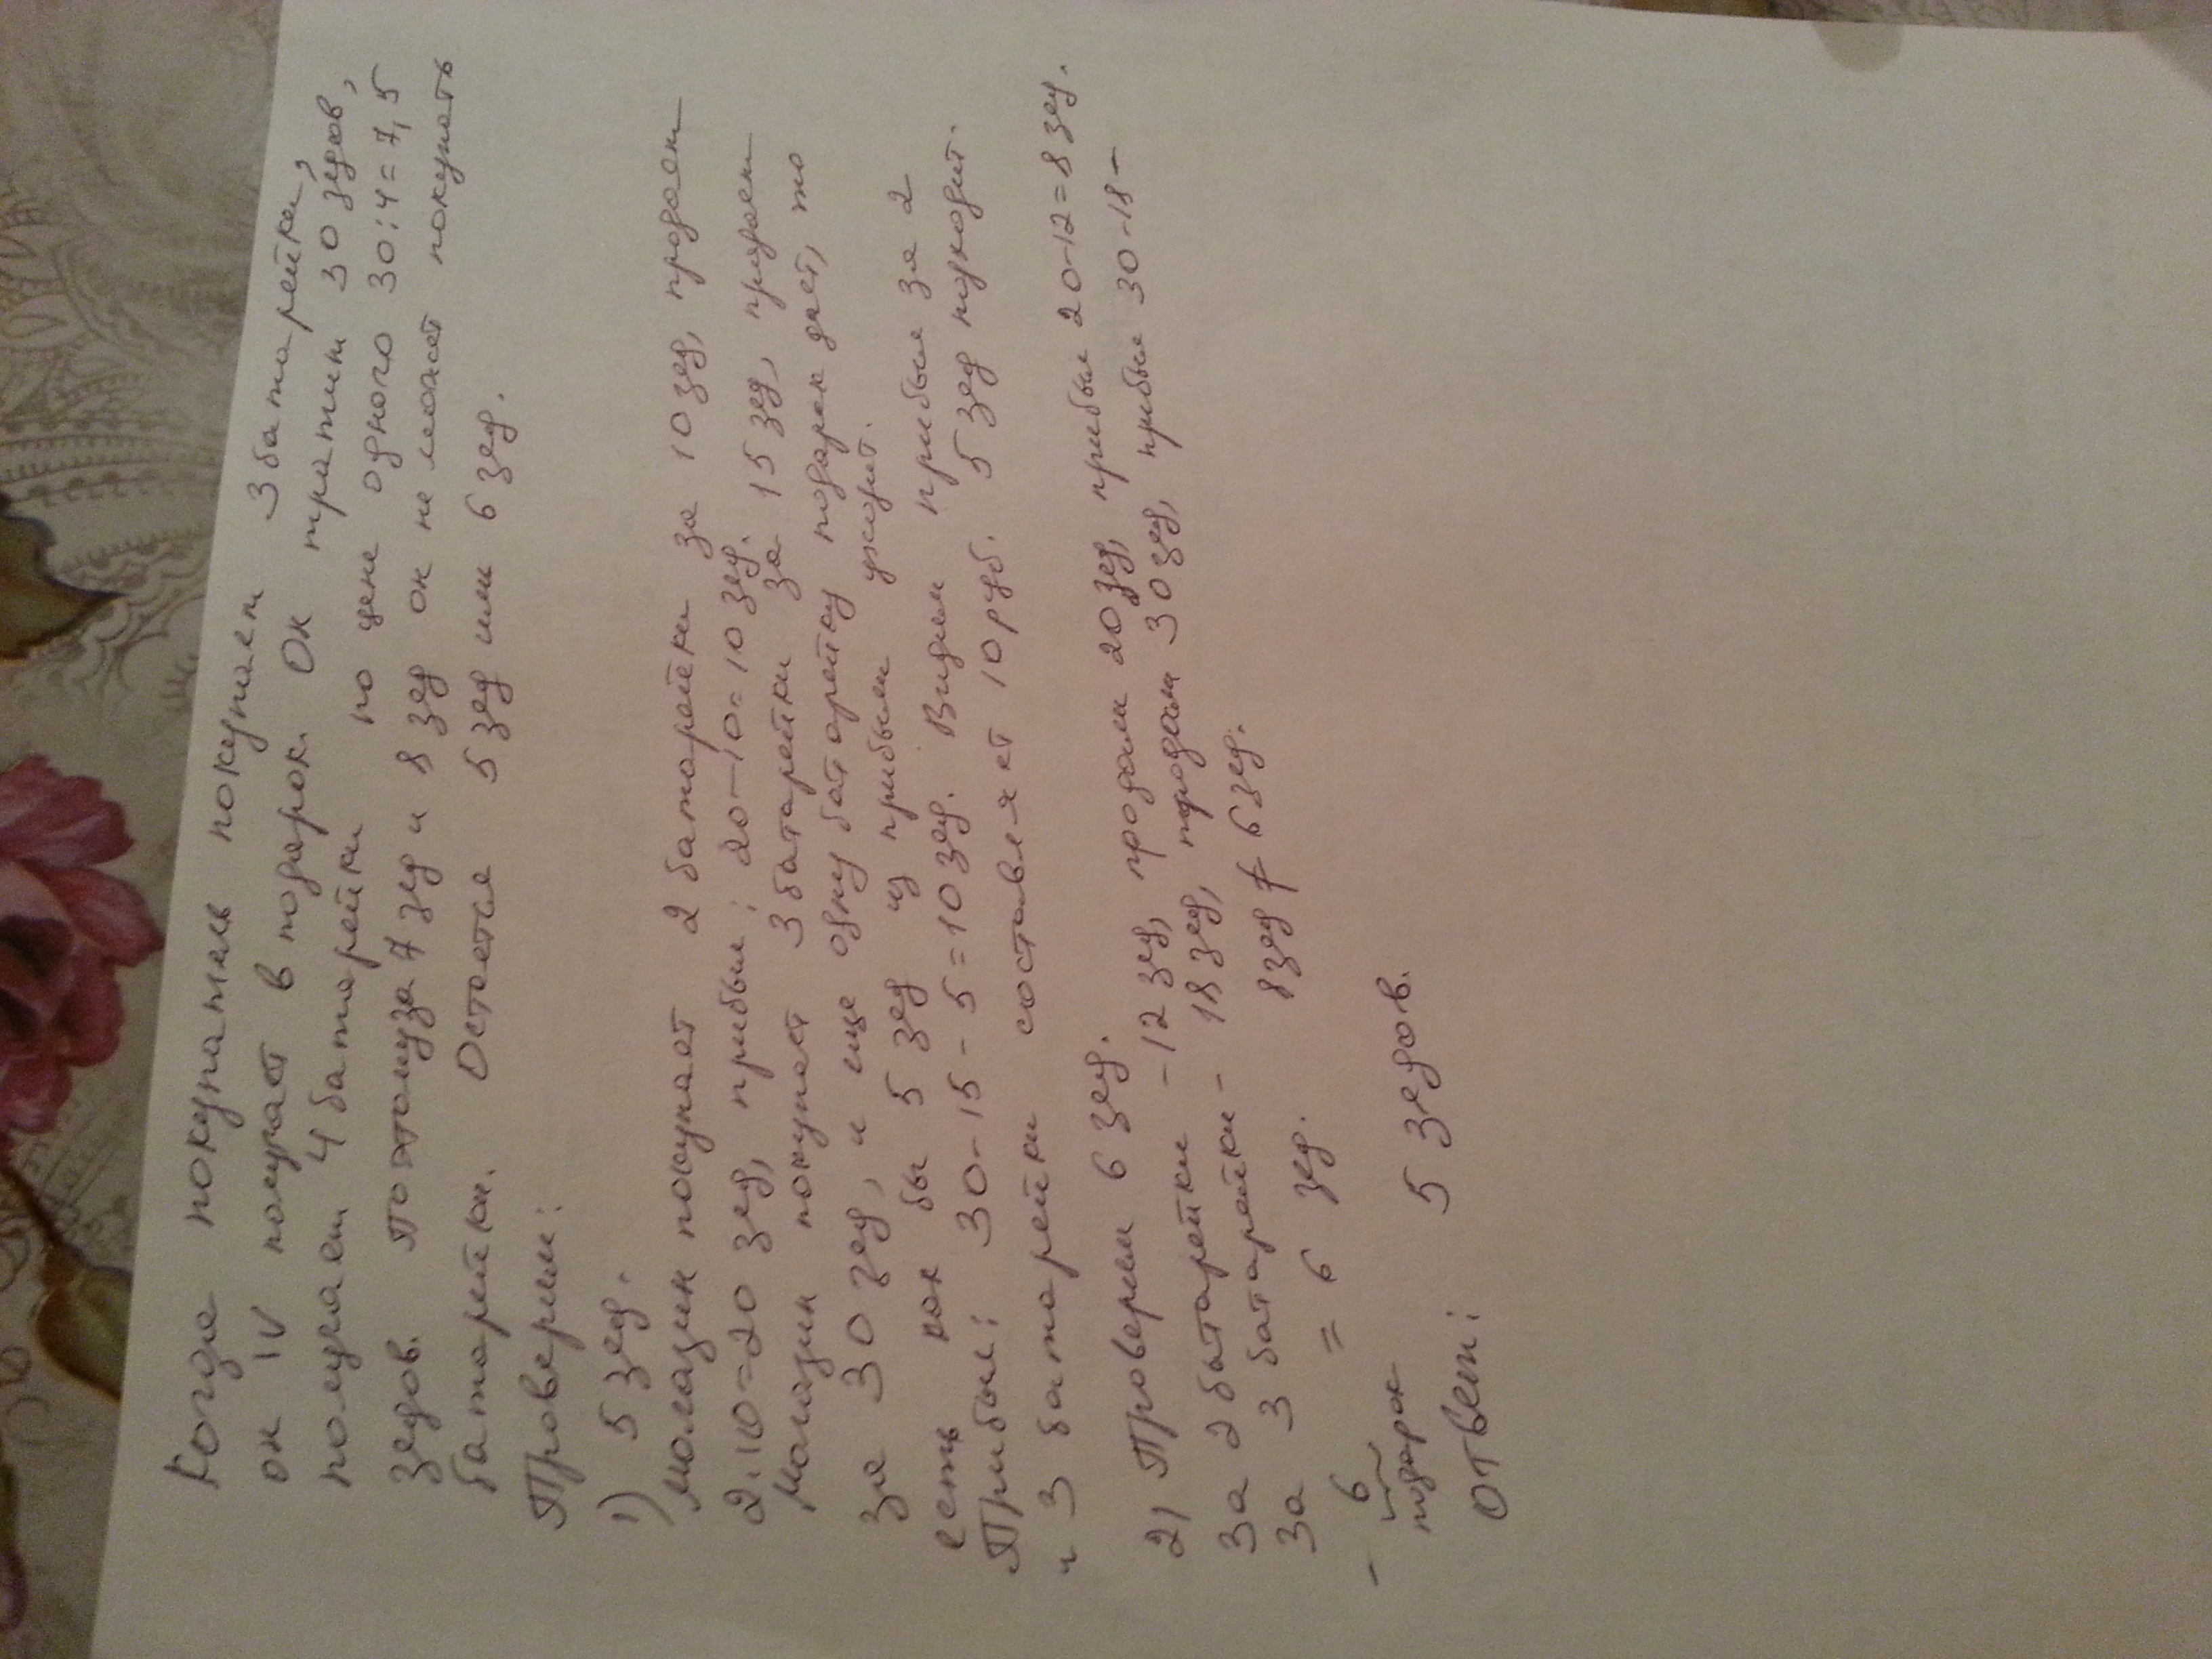 Когда покупатель покупает 3 батарейки,
он IV получает в подарок. Он тратит 30 зедов,
получает 4 батарейки по цене одного 30:4=7,5
зедов. Поэтому за 7 зед и 8 зед он не может покупать
батарейки. Остается 5 зед или 6 зед.
Проверим:
1) 5 зед.
магазин покупает 2 батарейки за 10 зед, продает
2·10=20 зед, прибыл: 20-10=10 зед.
Магазин покупает 3 батарейки за 15 зед, продает
за 30 зед, и еще одну батарейку подарок дает, то
есть как бы 5 зед из прибыли уходит.
Прибыл: 30-15-5=10 зед. Видим прибыл за 2
и 3 батарейки составляет 10 руб. 5 зед подходит.
2) Проверим 6 зед.
За 2 батарейки - 12 зед, продали 20 зед, прибыл 20-12=8 зед.
За 3 батарейки - 18 зед, продали 30 зед, прибыл 30-18-
- 6 = 6 зед. 8 зед ≠ 6 зед.
подарок
Ответ: 5 зедов.